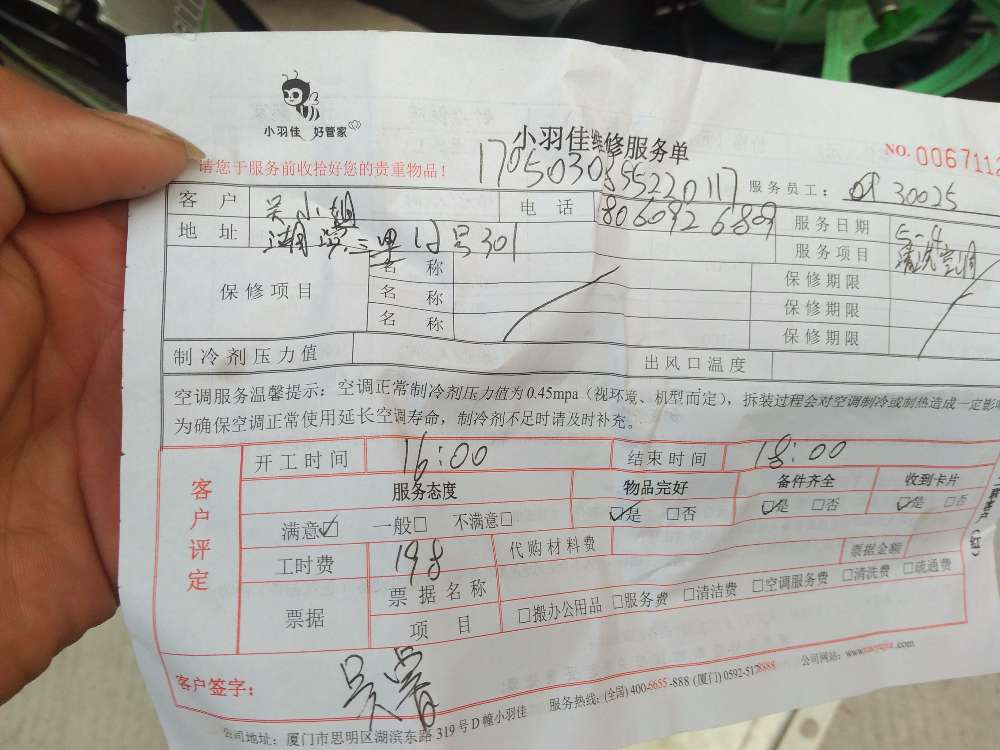 小羽佳 好管家
小羽佳维修服务单
NO. 0067112
请您于服务前收拾好您的贵重物品！
服务员工： 30025
客户 吴小姐 电话
服务日期 5-4
地址 湖滨三里 号301
服务项目 清洗空调
保修项目 名称 保修期限
名称 保修期限
名称 保修期限
制冷剂压力值 出风口温度
空调服务温馨提示：空调正常制冷剂压力值为0.45mpa（视环境、机型而定），拆装过程会对空调制冷或制热造成一定影
为确保空调正常使用延长空调寿命，制冷剂不足时请及时补充。
客户评定
开工时间 16:00 结束时间 18:00
服务态度 物品完好 备件齐全 收到卡片
满意☑ 一般□ 不满意□ ☑是 □否 ☑是 □否 ☑是 □否
工时费 198 代购材料费 票据金额
票据 票据名称 □搬办公用品 □服务费 □清洁费 □空调服务费 □清洗费 □疏通费
项目
客户签字：
服务热线：(全国) 400-6655-888 (厦门) 0592-5128888 公司网站：www.xiaoyujia.com
公司地址：厦门市思明区湖滨东路319号D幢小羽佳